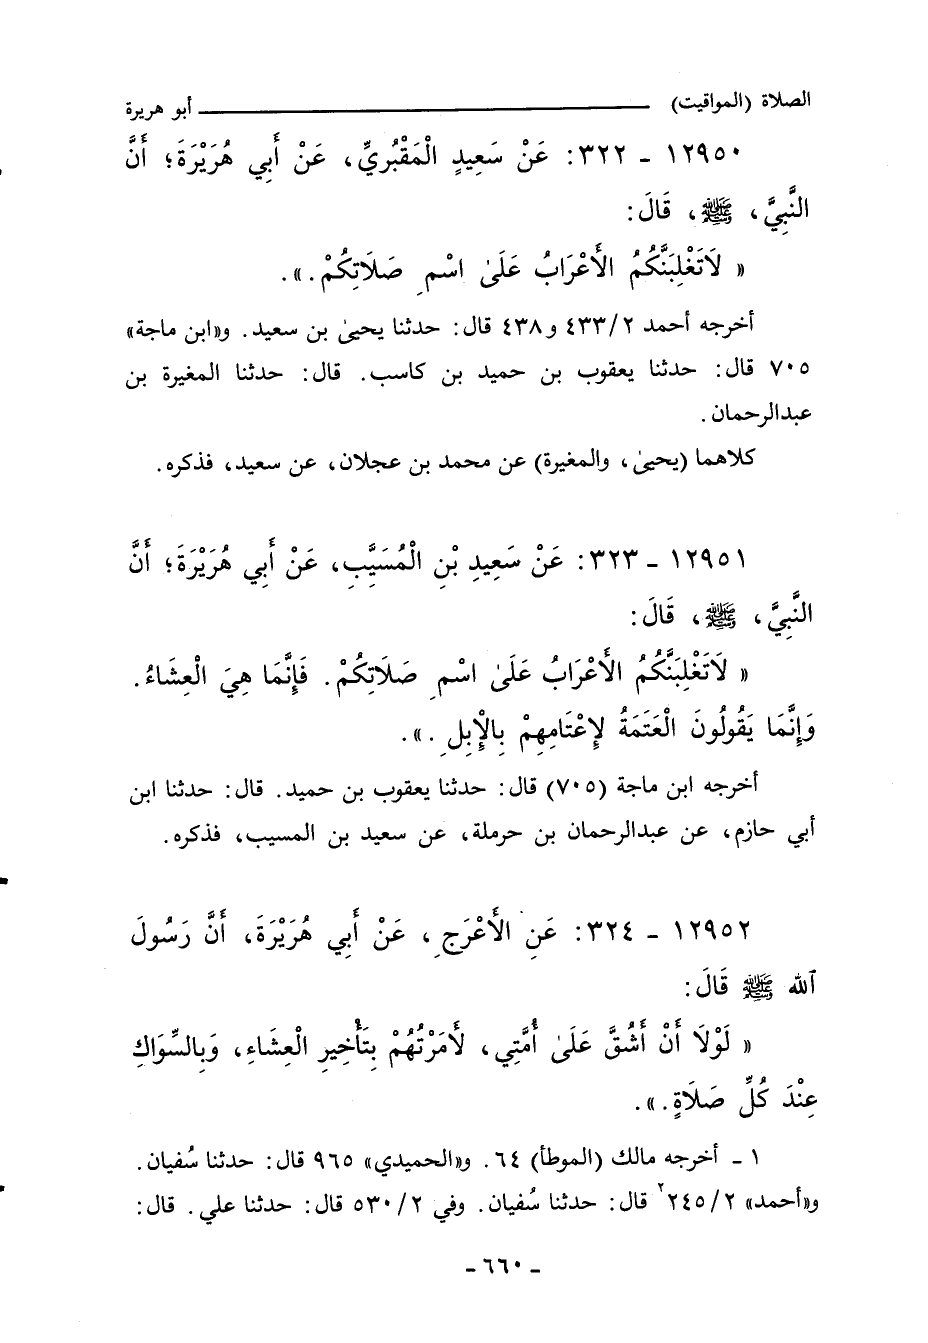 الصلاة (المواقيت) ــــــــــ أبو هريرة
١٢٩٥٠ - ٣٢٢: عَنْ سَعِيدٍ الْمَقْبُرِيِّ، عَنْ أَبِي هُرَيْرَةَ؛ أَنَّ
النَّبِيَّ، ﷺ، قَالَ:
« لَاتَغْلِبَنَّكُمُ الأَعْرَابُ عَلَىٰ اسْمِ صَلَاتِكُمْ.».
أخرجه أحمد ٤٣٣/٢ و ٤٣٨ قال: حدثنا يحيىٰ بن سعيد. و«ابن ماجة»
٧٠٥ قال: حدثنا يعقوب بن حميد بن كاسب. قال: حدثنا المغيرة بن
عبدالرحمان.
كلاهما (يحيىٰ، والمغيرة) عن محمد بن عجلان، عن سعيد، فذكره.
١٢٩٥١ - ٣٢٣: عَنْ سَعِيدِ بْنِ الْمُسَيَّبِ، عَنْ أَبِي هُرَيْرَةَ؛ أَنَّ
النَّبِيَّ، ﷺ، قَالَ:
« لَاتَغْلِبَنَّكُمُ الأَعْرَابُ عَلَىٰ اسْمِ صَلَاتِكُمْ. فَإِنَّمَا هِيَ الْعِشَاءُ.
وَإِنَّمَا يَقُولُونَ الْعَتَمَةُ لِإِعْتَامِهِمْ بِالْإِبِلِ.».
أخرجه ابن ماجة (٧٠٥) قال: حدثنا يعقوب بن حميد. قال: حدثنا ابن
أبي حازم، عن عبدالرحمان بن حرملة، عن سعيد بن المسيب، فذكره.
١٢٩٥٢ - ٣٢٤: عَنِ الأَعْرَجِ، عَنْ أَبِي هُرَيْرَةَ، أَنَّ رَسُولَ
ٱللهِ ﷺ قَالَ:
« لَوْلَا أَنْ أَشُقَّ عَلَىٰ أُمَّتِي، لَأَمَرْتُهُمْ بِتَأْخِيرِ الْعِشَاءِ، وَبِالسِّوَاكِ
عِنْدَ كُلِّ صَلَاةٍ.».
١ - أخرجه مالك (الموطأ) ٦٤. و«الحميدي» ٩٦٥ قال: حدثنا سُفيان.
و«أحمد» ٢٤٥/٢ قال: حدثنا سُفيان. وفي ٥٣٠/٢ قال: حدثنا علي. قال:
- ٦٦٠ -